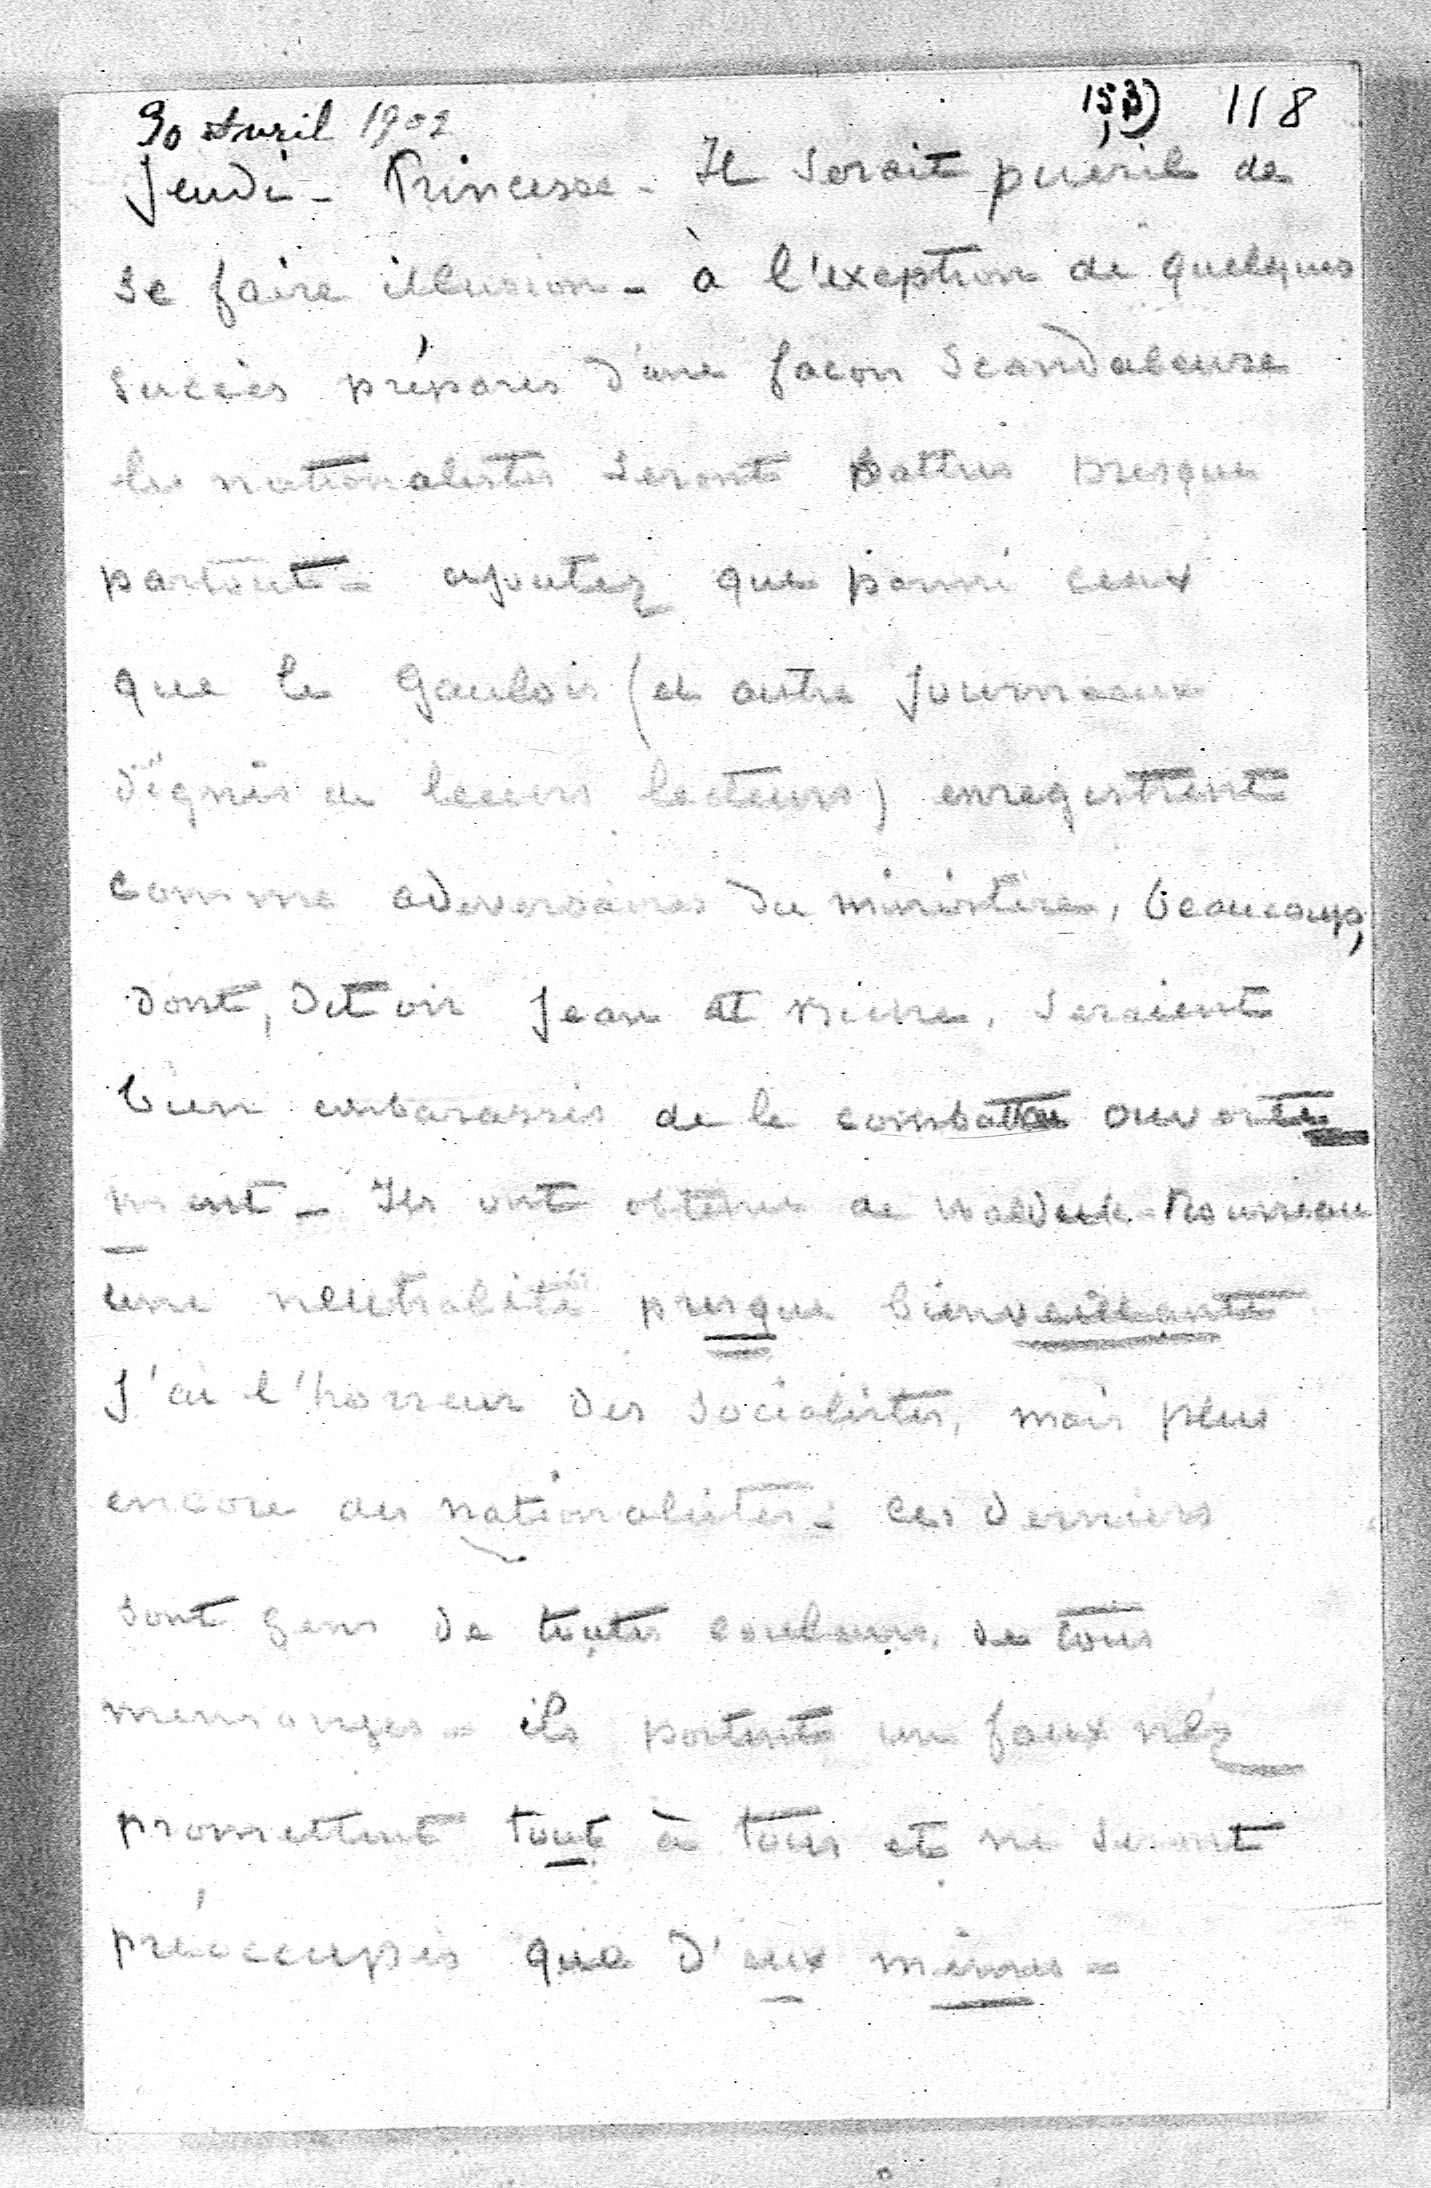 30 Avril 1902
153) 118
Jeudi - Princesse - Il serait puéril de
se faire illusion - à l'exception de quelques
succès préparés d'une façon scandaleuse
les nationalistes seront battus presque
partout - ajoutez que parmi ceux
que le Gaulois (et autre journeaux
dignes de leurs lecteurs) enregistrent
comme adversaires du ministère, beaucoup,
dont, dit on Jean at Pierre, seraient
bien embarassés de le combattre ouverte
ment - Ils ont obtenu de Waldeck-Rousseau
une neutralité presque bienveillante
J'ai l'horreur des socialistes, mais plus
encore des nationalistes - ces derniers
sont gens de toutes couleurs, de tous
mensonges - ils portent un faux néz
promettent tout à tous et ne seront
préoccupés que d'eux mêmes -